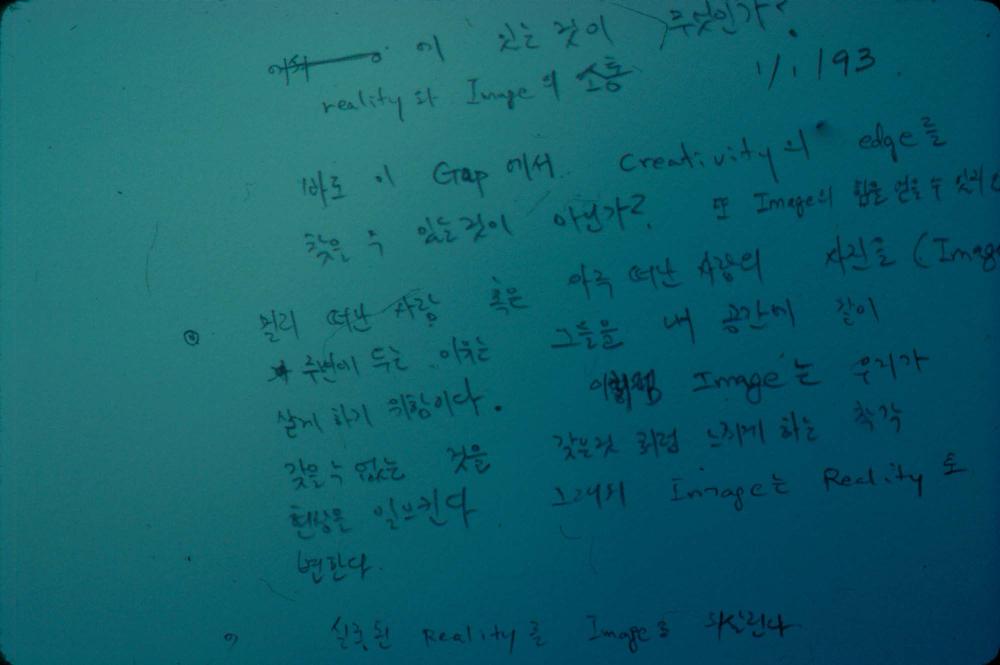 에 있는 것이 무엇인가?
reality와 Image의 소통 1/1/93
바로 이 Gap에서 Creativity의 edge를
찾을 수 있는것이 아닌가? 또 Image의 힘을 얻을 수 있지
멀리 떠난 사람 혹은 아주 떠난 사람의 사진을 (Image
주변에 두는 이유는 그들을 내 공간에 같이
살게 하기 위함이다. Image는 우리가
갖을 수 없는 것을 갖은것 처럼 느끼게 하는 착각
현상을 일으킨다 그래서 Image는 Reality로
변한다.
실종된 Reality를 Image로 되살린다